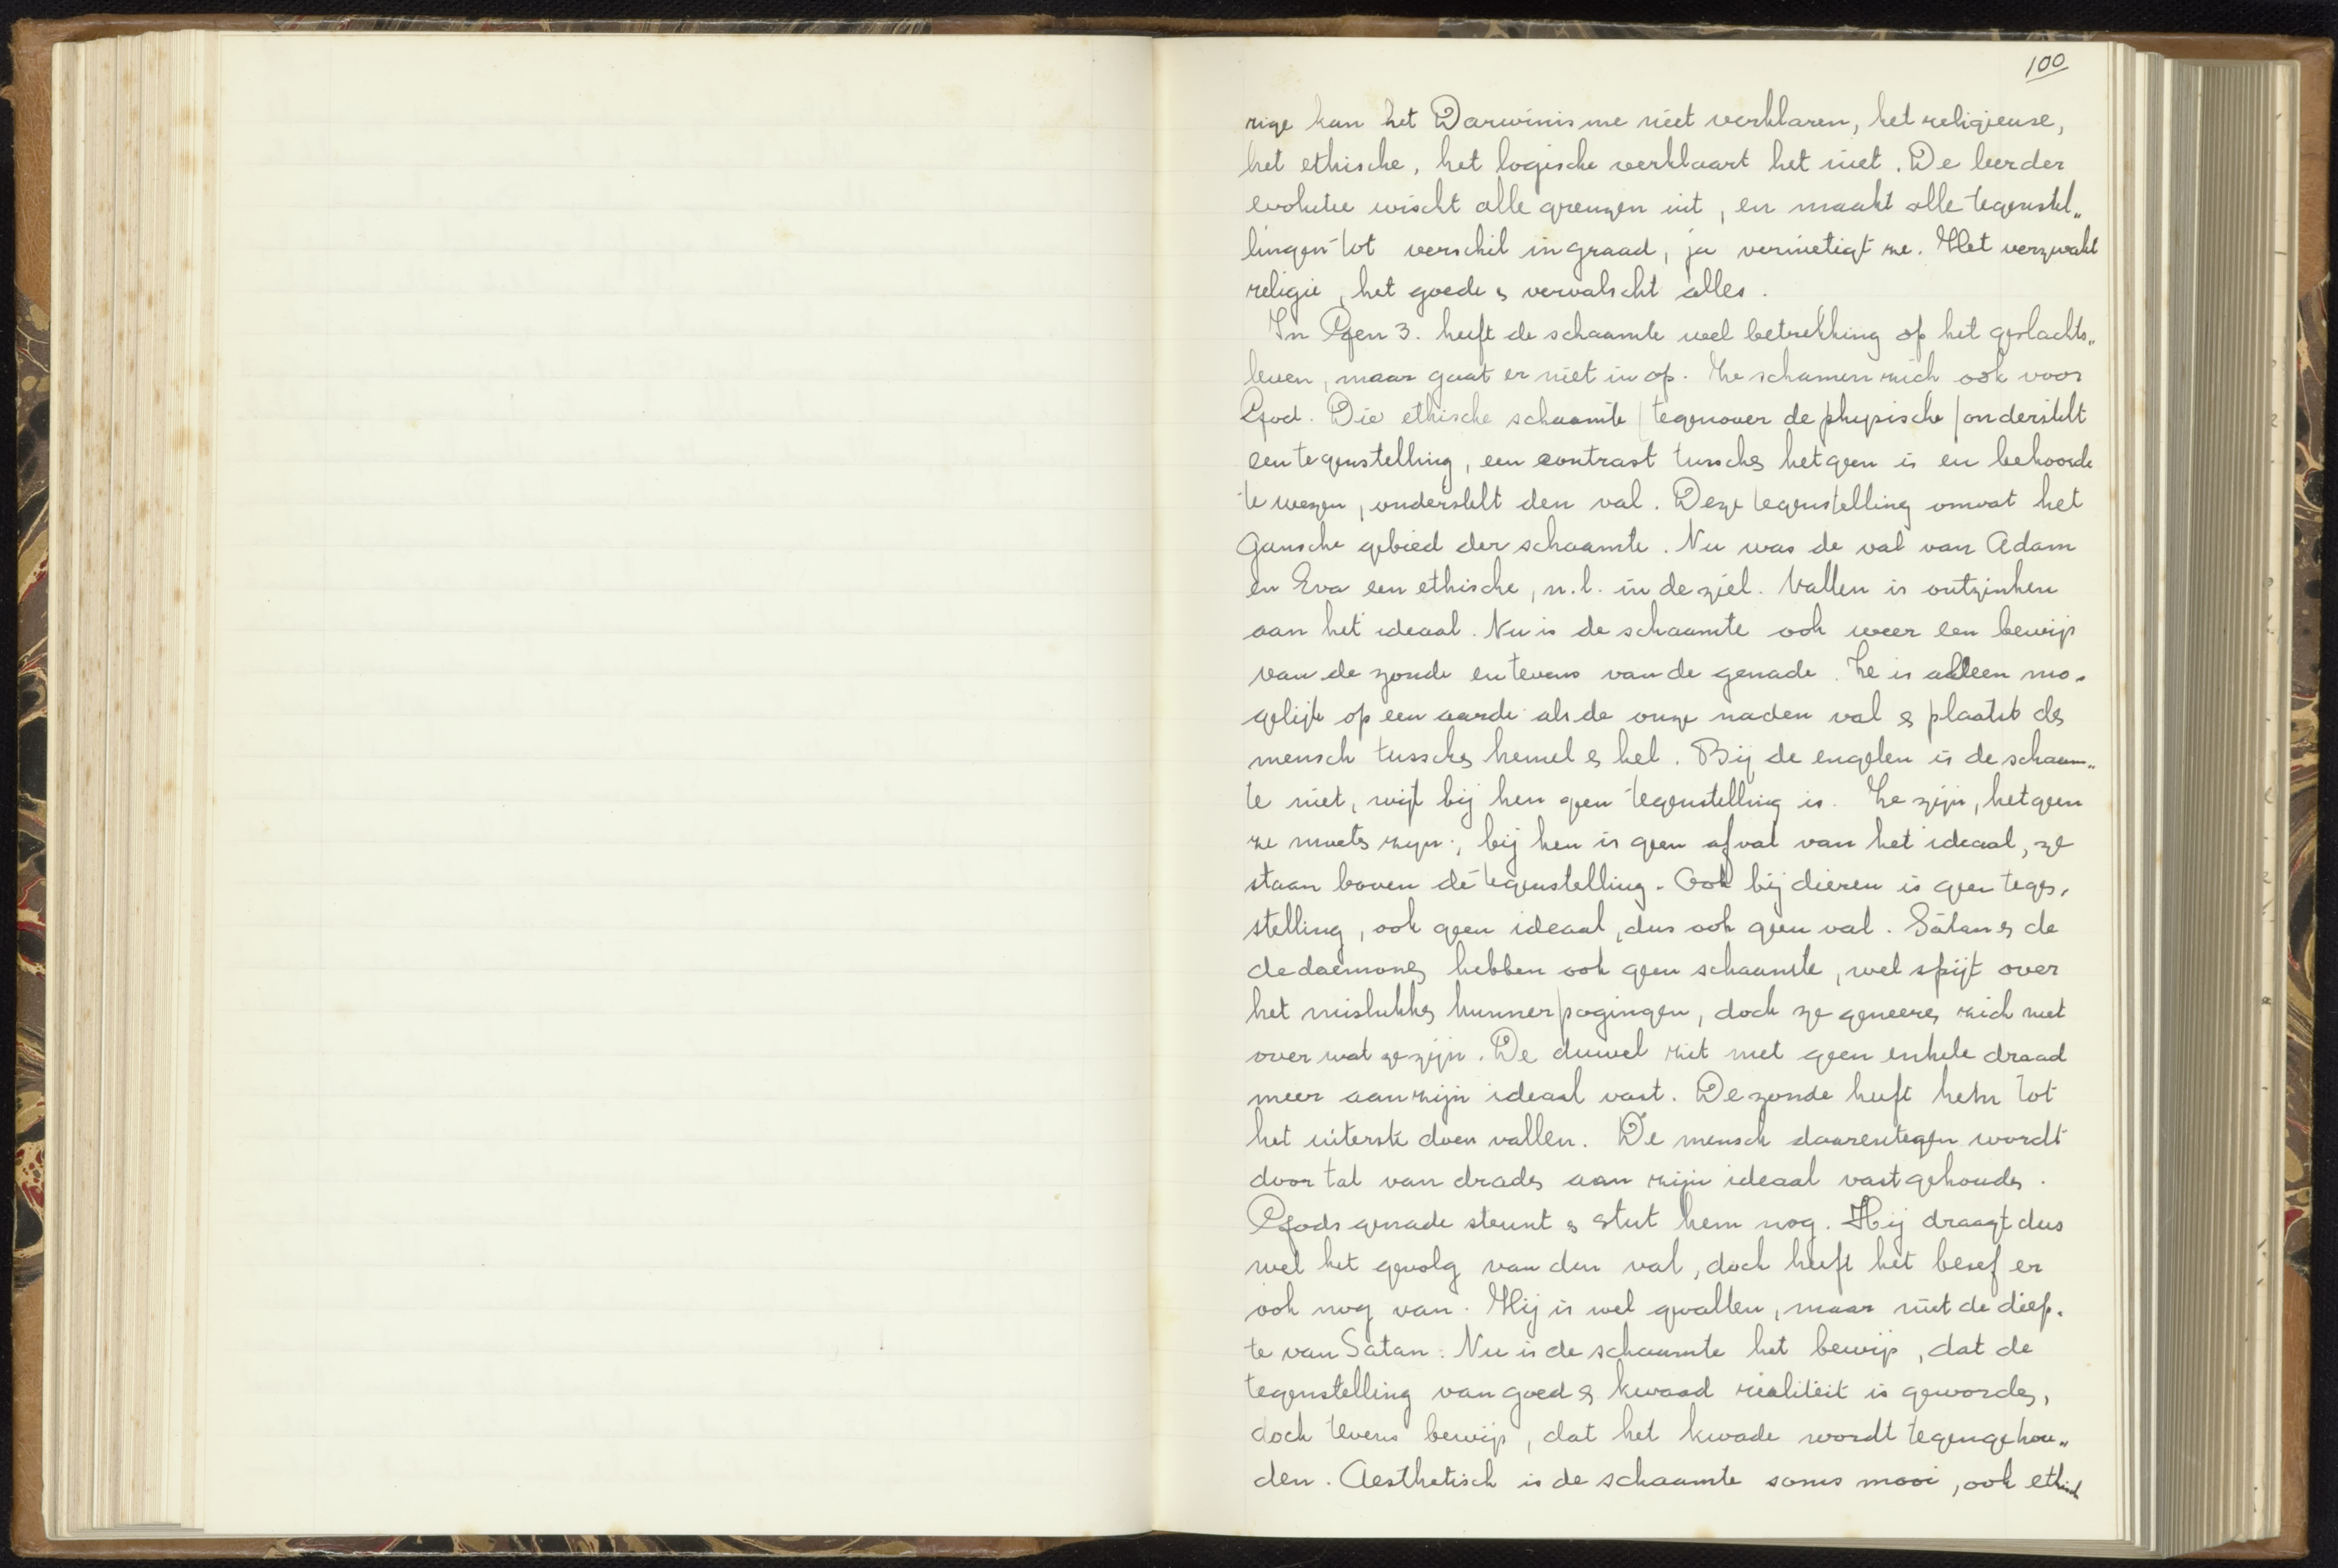 100
rige kan het Darwinisme niet verklaren, het religieuse,
het ethische, het logische verklaart het niet. De leer der
evolutie wischt alle grenzen uit, en maakt alle tegenstel„
lingen tot verschil in graad, ja vernietigt ze. Het verzwakt
religie, het goede & vervalscht alles.
In Gen 3. heeft de schaamte wel betrekking op het geslachts„
leven, maar gaat er niet in op. Ze schamen zich ook voor
God. Die ethische schaamte (tegenover de physische) onderstelt
een tegenstelling, een contrast tusschen hetgeen is en behoorde
te wezen, onderstelt den val. Deze tegenstelling omvat het
gansche gebied der schaamte. Nu was de val van Adam
en Eva een ethische, n.l. in de ziel. Vallen is ontzinken
aan het ideaal. Nu is de schaamte ook weer een bewijs
van de zonde en tevens van de genade. Ze is alleen mo-
gelijk op een aarde als de onze na den val & plaatst den
mensch tusschen hemel & hel. Bij de engelen is de schaam„
te niet, wijl bij hen geen tegenstelling is. Ze zijn, hetgeen
ze moeten zijn; bij hen is geen afval van het ideaal, ze
staan boven de tegenstelling. Ook bij dieren is geen tegen-
stelling, ook geen ideaal, dus ook geen val. Satan & de
de daemonen hebben ook geen schaamte, wel spijt over
het mislukken hunner pogingen, doch ze geneeren zich niet
over wat ze zijn. De duivel zit met geen enkele draad
meer aan zijn ideaal vast. De zonde heeft hem tot
het uiterste doen vallen. De mensch daarentegen wordt
door tal van draden aan zijn ideaal vastgehouden.
Gods genade steunt & stut hem nog. Hij draagt dus
wel het gevolg van den val, doch heeft het besef er
ook nog van. Hij is wel gevallen, maar niet de diep-
te van Satan. Nu is de schaamte het bewijs, dat de
tegenstelling van goed & kwaad realiteit is geworden,
doch tevens bewijs, dat het kwade wordt tegengehou„
den. Aesthetisch is de schaamte soms mooi, ook ethisch